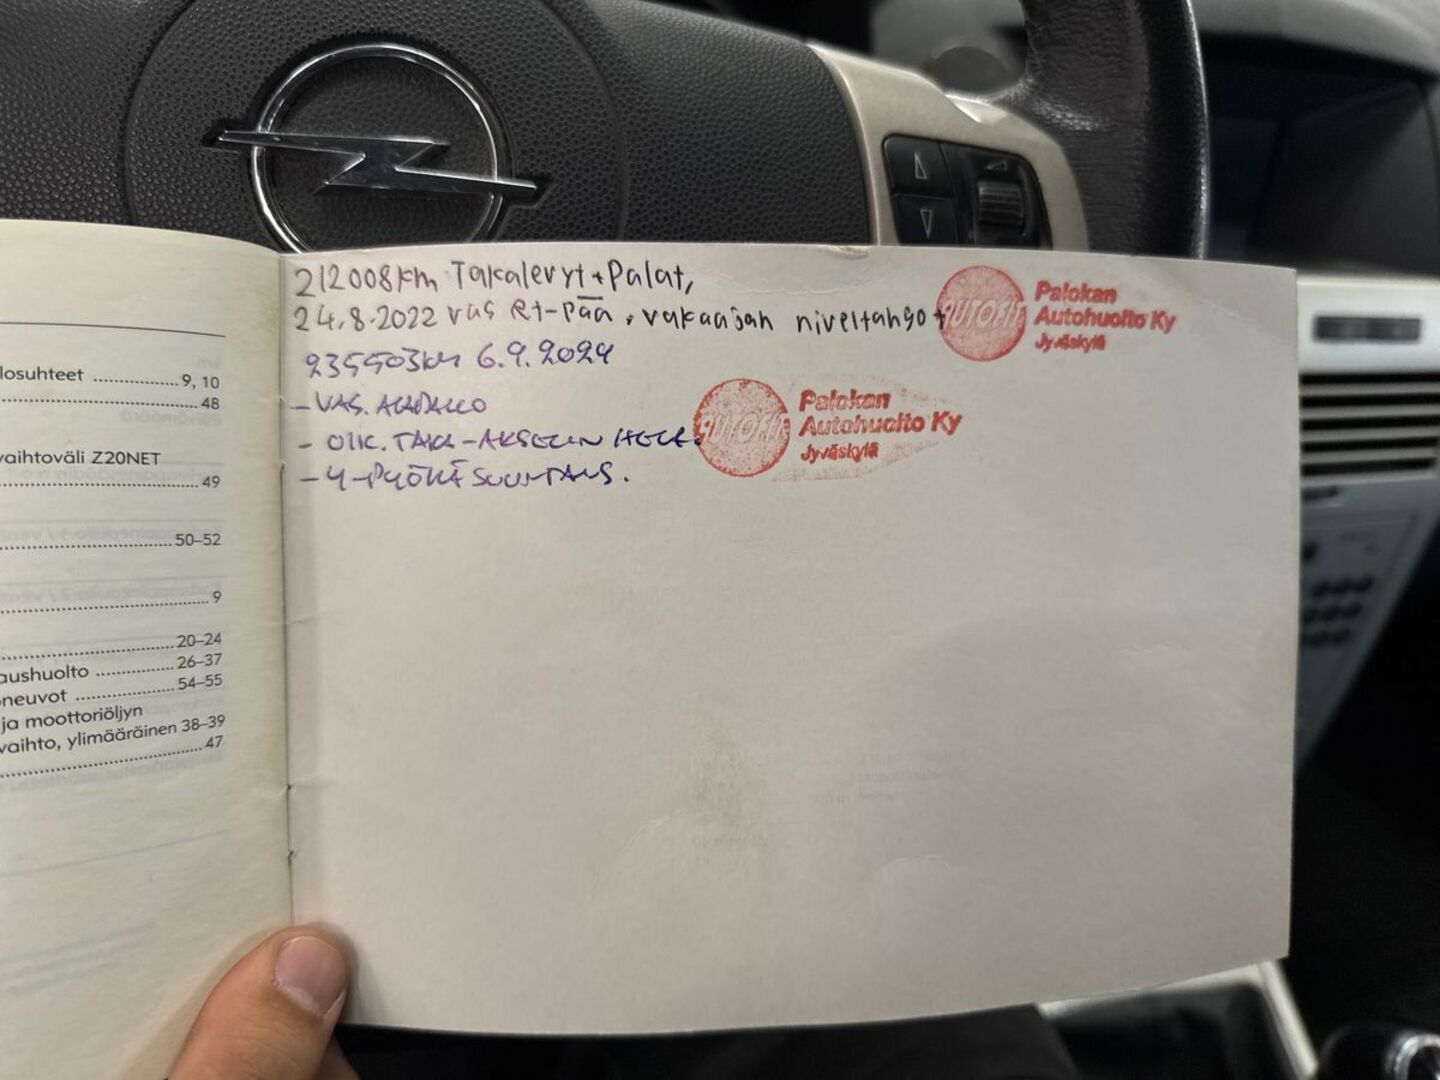 losuhteet .................. 9, 10
48
vaihtoväli Z20NET
49
50–52
9
20–24
aushuolto .................. 26–37
neuvot .................. 54–55
ja moottoriöljyn
vaihto, ylimääräinen 38–39
47
212008km Takalevyt + Palat,
24.8.2022 vas Rt-Pää, vakaajan niveltanko +
6.9.2024
- VAS.
- OIK. TAKA-AKSELIN
- 4-PYÖRÄSUUNTAUS.
AUTOFIT
Palokan
Autohuolto Ky
Jyväskylä
AUTOFIT
Palokan
Autohuolto Ky
Jyväskylä